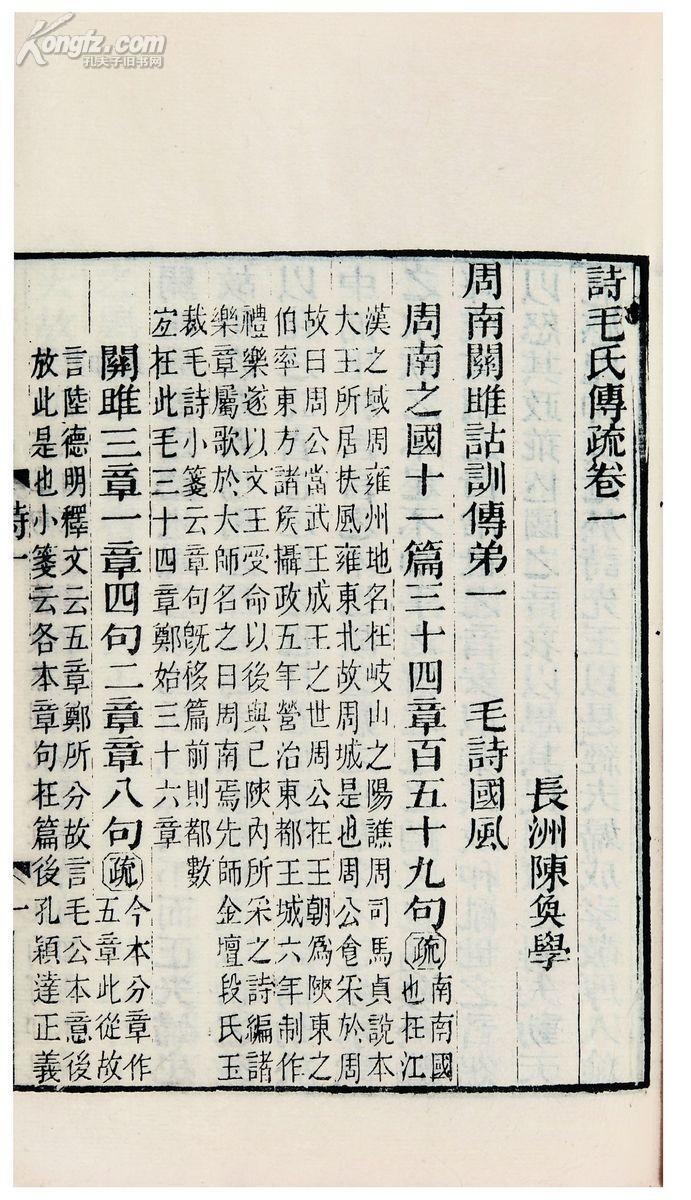 Kongfz.com
孔夫子旧书网
詩毛氏傳疏卷一
長洲陳奐學
周南關雎詁訓傳弟一 毛詩國風
周南之國十一篇三十四章百五十九句疏南南國
也在江
漢之域周雍州地名在岐山之陽譙周司馬貞說本
大王所居扶風雍東北故周城是也周公食采於周
故曰周公當武王成王之世周公在王朝爲陝東之
伯率東方諸矦攝政五年營治東都王城六年制作
禮樂遂以文王受命以後與己陝內所采之詩編諸
樂章屬歌於大師名之曰周南焉先師金壇段氏玉
裁毛詩小箋云章句旣移篇前則都數
宐在此毛三十四章鄭始三十六章
關雎三章一章四句二章章八句疏今本分章作
五章此從故
言陸德明釋文云五章鄭所分故言毛公本意後
放此是也小箋云各本章句在篇後孔穎達正義
詩一
一